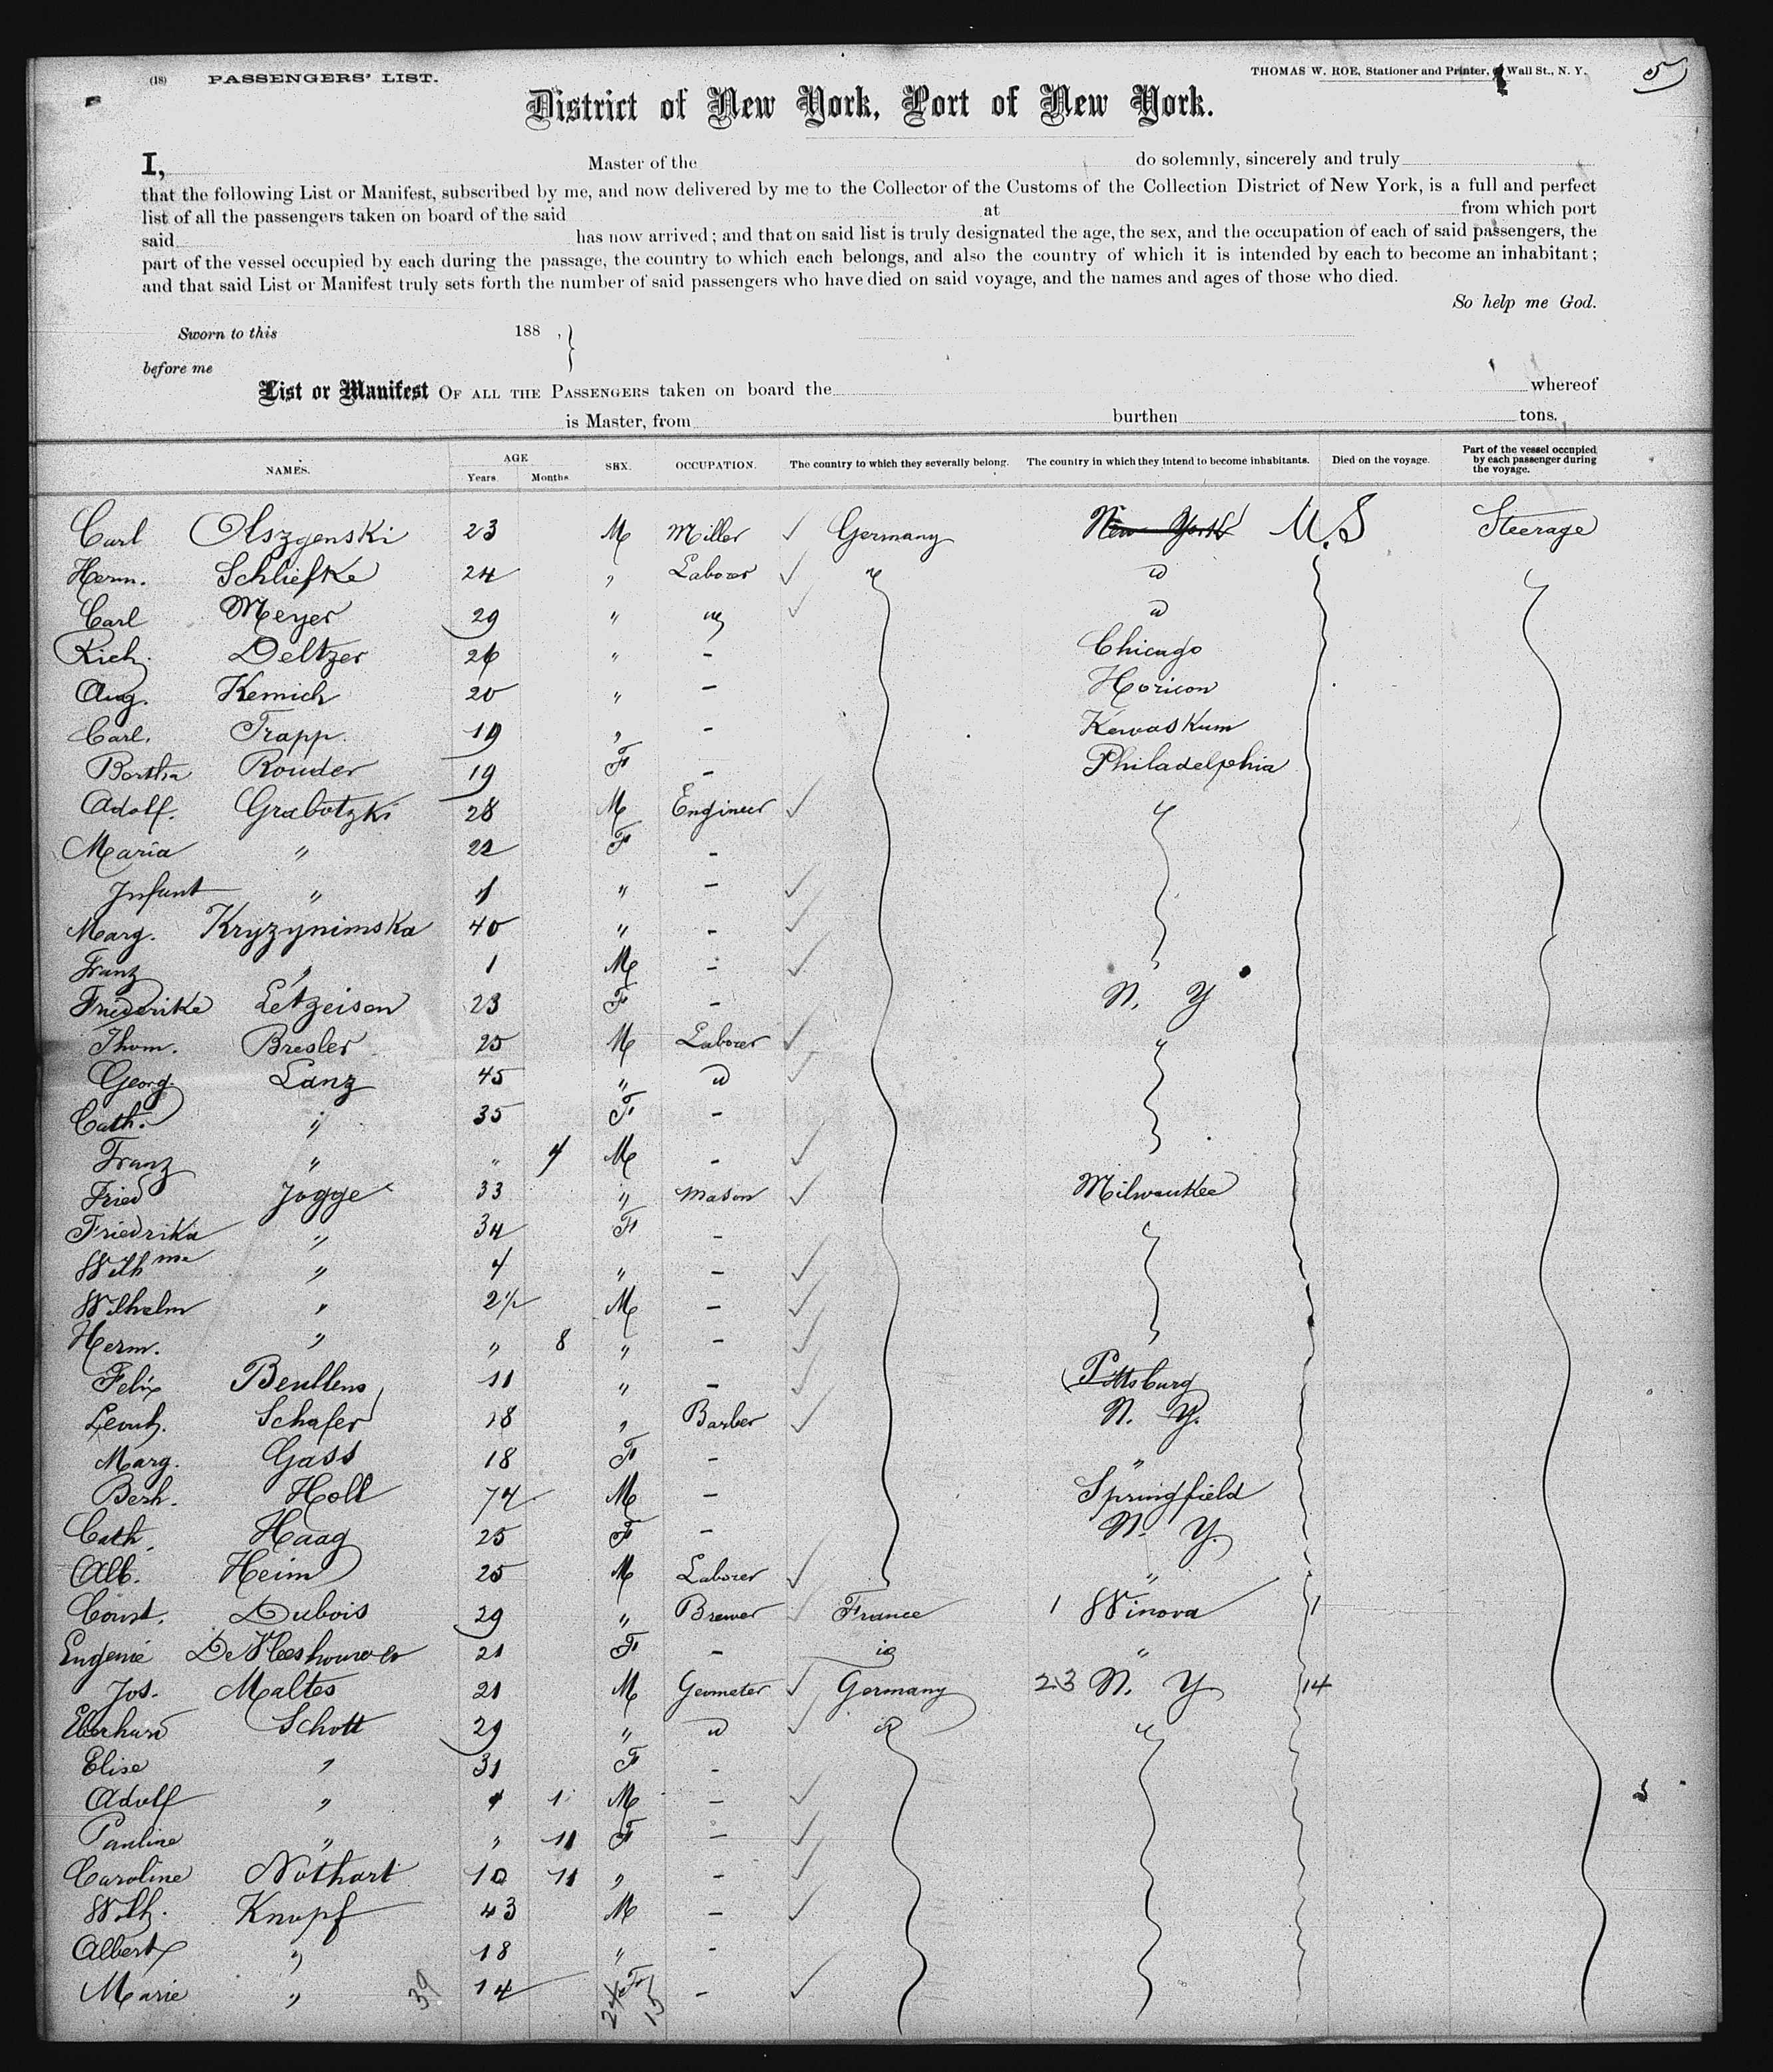 (18) PASSENGERS' LIST. THOMAS W. ROE, Stationer and Printer, Wall St., N. Y. 5
District of New York, Port of New York.
I, Master of the do solemnly, sincerely and truly
that the following List or Manifest, subscribed by me, and now delivered by me to the Collector of the Customs of the Collection District of New York, is a full and perfect
list of all the passengers taken on board of the said at from which port
said has now arrived; and that on said list is truly designated the age, the sex, and the occupation of each of said passengers, the
part of the vessel occupied by each during the passage, the country to which each belongs, and also the country of which it is intended by each to become an inhabitant;
and that said List or Manifest truly sets forth the number of said passengers who have died on said voyage, and the names and ages of those who died.
So help me God.
Sworn to this 188 , }
before me
List or Manifest OF ALL THE PASSENGERS taken on board the whereof
is Master, from burthen tons.
NAMES. AGE Years. Months. SEX. OCCUPATION. The country to which they severally belong. The country in which they intend to become inhabitants. Died on the voyage. Part of the vessel occupied by each passenger during the voyage.
Carl Olszgenski 23 M Miller ✓ Germany New York U.S Steerage
Herm. Schliefke 24 " Laborer ✓
Carl Meyer 29 " ✓
Rich. Deltzer 26 " - Chicago
Aug. Kemich 20 " - Horicon
Carl. Trapp. 19 " - Kewaskum
Bertha Rouder 19 F - Philadelphia
Adolf. Grabotzki 28 M Engineer ✓
Maria " 22 F -
Infant " 1 " - ✓
Marg. Kryzynimska 40 " - ✓
Franz " 1 M - ✓
Friederike Letzeisen 23 F - N. Y
Thom. Bresler 25 M Laborer ✓
Georg. Lanz 45 " ✓
Cath. " 35 F -
Franz " " 4 M - ✓
Fried Jogge 33 " Mason ✓ Milwaukee
Friedrika " 34 F -
Wilhme " 4 " - ✓
Wilhelm " 2½ M - ✓
Herm. " " 8 " - ✓
Felix Beullens 11 " - ✓ Pittsburg
Leonh. Schafer 18 " Barber ✓ N. Y.
Marg. Gass 18 F - "
Berh. Holl 74 M - Springfield
Cath. Haag 25 F - N. Y.
Alb. Heim 25 M Laborer ✓ "
Const. Dubois 29 " Brewer ✓ France 1 Winova 1
Eugenie 21 F - "
Jos. Maltes 21 M Geometer ✓ Germany 23 N. Y 14
Eberhard Schott 29 " ✓
Elise " 31 F -
Adolf " 4 1 M - ✓
Pauline " " 11 F - ✓
Caroline Nothart 10 11 " - ✓
Wilh. Knupf 43 M - ✓
Albert " 18 " -
Marie " 39 14 F - ✓